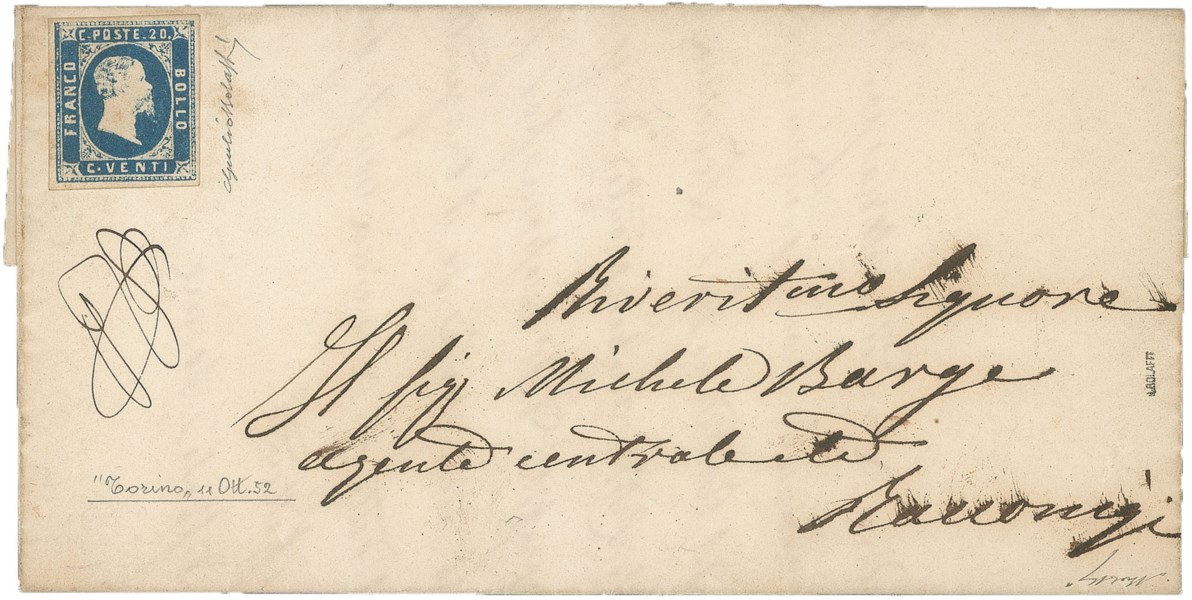 C. POSTE. 20.
FRANCO
BOLLO
C. VENTI
Riverit.mo Signore
Il Sig Michele Barge
Agente centrale etc
Racconigi
"Torino„ 11 Ott. 52
A. BOLAFFI